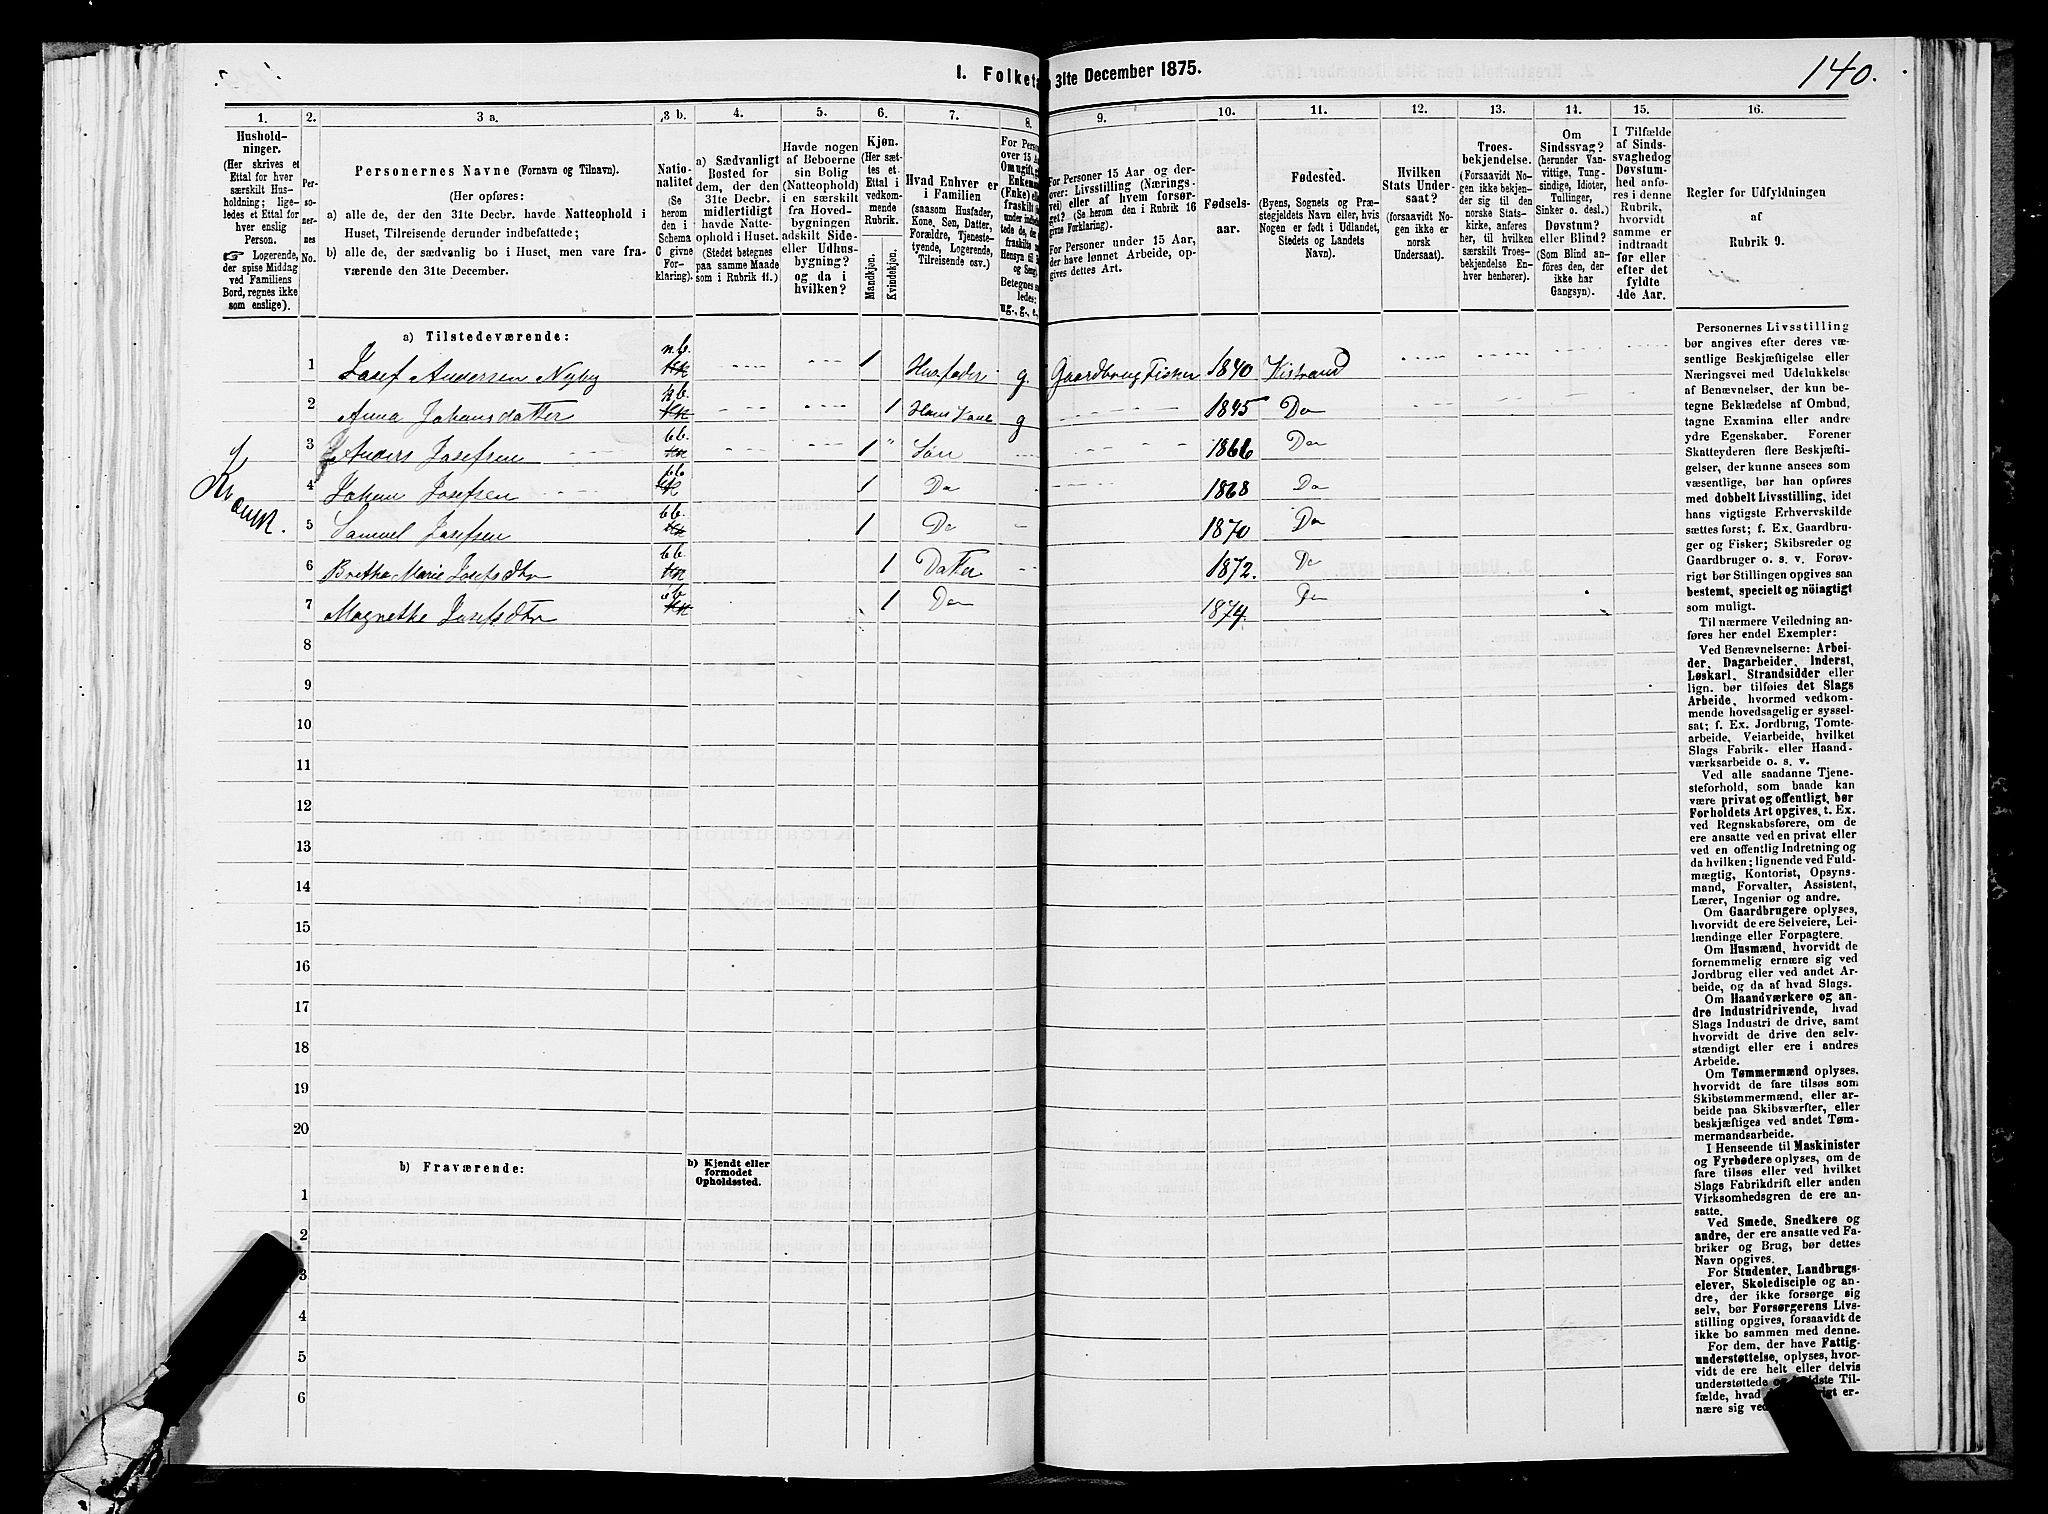 140.
I. Folketæ 31te December 1875.
1. 2. 3 a. 3 b. 4. 5. 6. 7. 8. 9. 10. 11. 12. 13. 14. 15. 16.
Hushold-
ninger.
(Her skrives et
Ettal for hver
særskilt Hus-
holdning; lige-
ledes et Ettal for
hver enslig
Person.
☞ Logerende,
der spise Middag
ved Familiens
Bord, regnes ikke
som enslige).
Per-
soner-
nes
No.
Personernes Navne (Fornavn og Tilnavn).
(Her opføres:
a) alle de, der den 31te Decbr. havde Natteophold i
Huset, Tilreisende derunder indbefattede;
b) alle de, der sædvanlig bo i Huset, men vare fra-
værende den 31te December).
Natio-
nalitet
(Se
herom
den i
Schema
C givne
For-
klaring).
a) Sædvanligt
Bosted for
dem, der den
31te Decbr.
midlertidigt
havde Natte-
ophold i Huset.
(Stedet betegnes
paa samme Maade
som i Rubrik 11.)
Havde nogen
af Beboerne
sin Bolig
(Natteophold)
i en særskilt
fra Hoved-
bygningen
adskilt Side-
eller Udhus-
bygning?
og da i
hvilken?
Kjøn.
(Her sæt-
tes et
Ettal i
vedkom-
mende
Rubrik.
Mandkjøn.
Kvindekjøn.
Hvad Enhver er
i Familien
(saasom Husfader,
Kone, Søn, Datter,
Forældre, Tjeneste-
tyende, Logerende,
Tilreisende osv.)
For Person
over 15 Aa
Omugift, g
Enkema
(Enke) elle
fraskilt
Betegnes saa
ledes:
ug., g., e.,
For Personer 15 Aar og der-
over: Livsstilling (Nærings-
vei) eller af hvem forsør-
get? (Se herom den i Rubrik 16
givne Forklaring).
For Personer under 15 Aar,
der have lønnet Arbeide, op-
gives dettes Art.
Fødsels-
aar.
Fødested.
(Byens, Sognets og Præ-
stegjeldets Navn eller, hvis
Nogen er født i Udlandet,
Stedets og Landets
Navn).
Hvilken
Stats Under-
saat?
(forsaavidt No-
gen ikke er
norsk
Undersaat).
Troes-
bekjendelse.
(Forsaavidt No-
gen ikke bekjen-
der sig til den
norske Stats-
kirke, anføres
her, til hvilken
særskilt Troes-
bekjendelse En-
hver henhører).
Om
Sindssvag?
(herunder Van-
vittige, Tung-
sindige, Idioter,
Tullinger,
Sinker o. desl.)
Døvstum?
eller Blind?
(Som Blind an-
føres den, der
ikke har
Gangsyn).
I Tilfælde
af Sinds-
svaghed og
Døvstum-
hed anfø-
res i denne
Rubrik,
hvorvidt
samme er
indtraadt
før eller
efter det
fyldte
4de Aar.
Regler for Udfyldningen
af
Rubrik 9.
a) Tilstedeværende:
1 Josef Andersen Nyby n.b. 1 Husfader g. Gaardbrug Fisker 1840 Kistrand
2 Anna Johansdatter n.b. 1 Hans Kone g 1845 Do
3 Anders Josefsen b.b. 1 " Søn 1866 Do
4 Johan Josefsen b.b. 1 Do 1868 Do
5 Samuel Josefsen b.b. 1 Do 1870 Do
6 Bretha Marie Josefsdtr b.b. 1 Datter 1872. Do
7 Magnethe Josefsdtr b.b. 1 Do 1874. Do
8
9
10
11
12
13
14
15
16
17
18
19
20
b) Fraværende:
b) Kjendt eller
formodet
Opholdssted.
1
2
3
4
5
6
Personernes Livsstilling
bør angives efter deres væ-
sentlige Beskjæftigelse eller
Næringsvei med Udelukkelse
af Benævnelser, der kun be-
tegne Beklædelse af Ombud,
tagne Examina eller andre
ydre Egenskaber. Forener
Skatteyderen flere Beskjæfti-
gelser, der kunne ansees som
væsentlige, bør han opføres
med dobbelt Livsstilling, idet
hans vigtigste Erhvervskilde
sættes først; f. Ex. Gaardbru-
ger og Fisker; Skibsreder og
Gaardbruger o. s. v. Forøv-
rigt bør Stillingen opgives saa
bestemt, specielt og nöiagtigt
som muligt.
Til nærmere Veiledning an-
føres her endel Exempler:
Ved Benævnelserne: Arbei-
der, Dagarbeider, Inderst,
Løskarl, Strandsidder eller
lign. bør tilføies det Slags
Arbeide, hvormed vedkom-
mende hovedsagelig er syssel-
sat; f. Ex. Jordbrug, Tomte-
arbeide, Veiarbeide, hvilket
Slags Fabrik- eller Haand-
værksarbeide o. s. v.
Ved alle saadanne Tjene-
steforhold, som baade kan
være privat og offentligt, bør
Forholdets Art opgives, t. Ex.
ved Regnskabsførere, om de
ere ansatte ved en privat eller
ved en offentlig Indretning og
da hvilken; lignende ved Fuld-
mægtig, Kontorist, Opsyns-
mand, Forvalter, Assistent,
Lærer, Ingeniør og andre.
Om Gaardbrugere oplyses,
hvorvidt de ere Selveiere, Lei-
lændinge eller Forpagtere.
Om Husmænd, hvorvidt de
fornemmelig ernære sig ved
Jordbrug eller ved andet Ar-
beide, og da af hvad Slags.
Om Haandværkere og an-
dre Industridrivende, hvad
Slags Industri de drive, samt
hvorvidt de drive den selv-
stændigt eller ere i andres
Arbeide.
Om Tømmermænd oplyses,
hvorvidt de fare tilsøs som
Skibstømmermænd, eller ar-
beide paa Skibsværfter, eller
beskjæftiges ved andet Tøm-
mermandsarbeide.
I Henseende til Maskinister
og Fyrbødere oplyses, om de
fare tilsøs eller ved hvilket
Slags Fabrikdrift eller anden
Virksomhedsgren de ere an-
satte.
Ved Smede, Snedkere og
andre, der ere ansatte ved Fa-
briker og Brug, bør dettes
Navn opgives.
For Studenter, Landbrugs-
elever, Skoledisciple og an-
dre, der ikke forsørge sig
selv, bør Forsørgerens Livs-
stilling opgives, forsaavidt de
ikke bo sammen med denne.
For dem, der have Fattig-
understøttelse, oplyses, hvor-
vidt de ere helt eller delvis
understøttede og i sidste Til-
fælde, hvad er-
nære sig ved